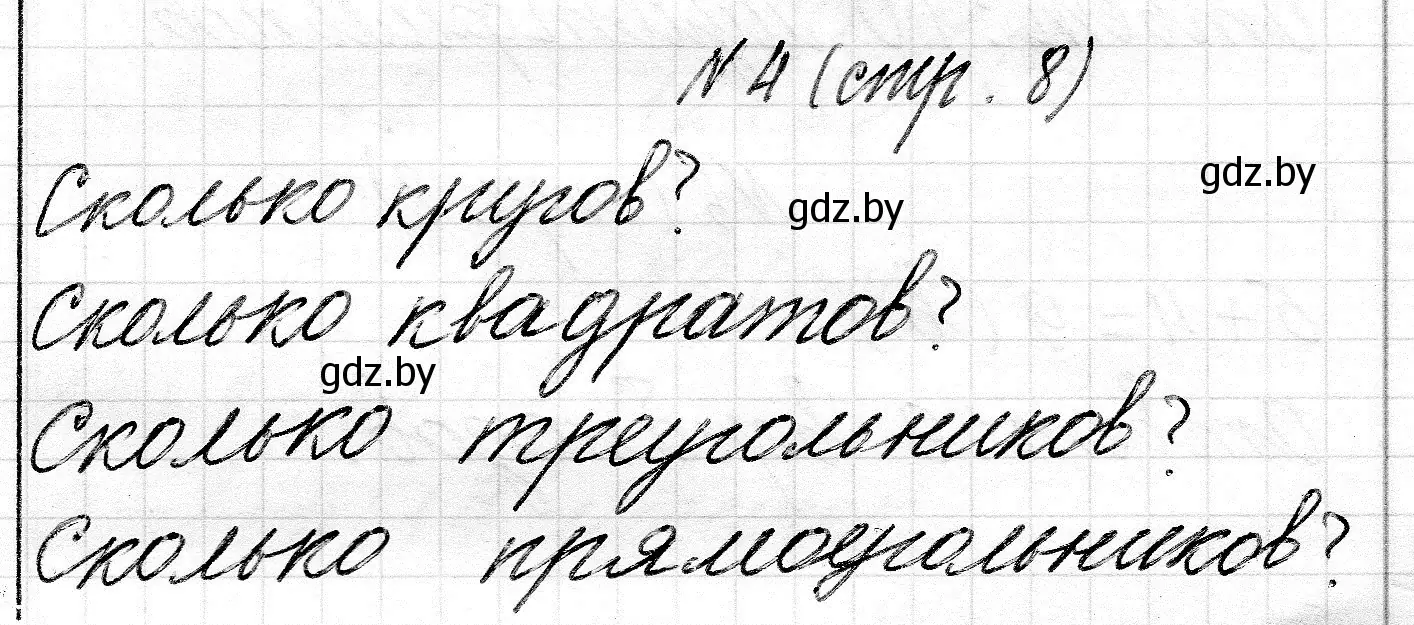 № 4 (стр. 8)
gdz.by
Сколько кругов?
gdz.by
Сколько квадратов?
gdz.by
Сколько треугольников?
Сколько прямоугольников?